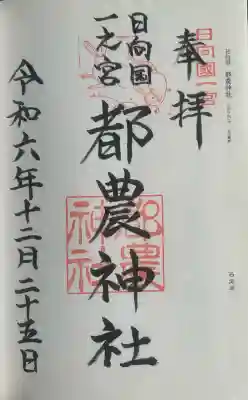 奉拝
日向國一宮
日向国
一之宮
都農神社
都農
神社
令和六年十二月二十五日